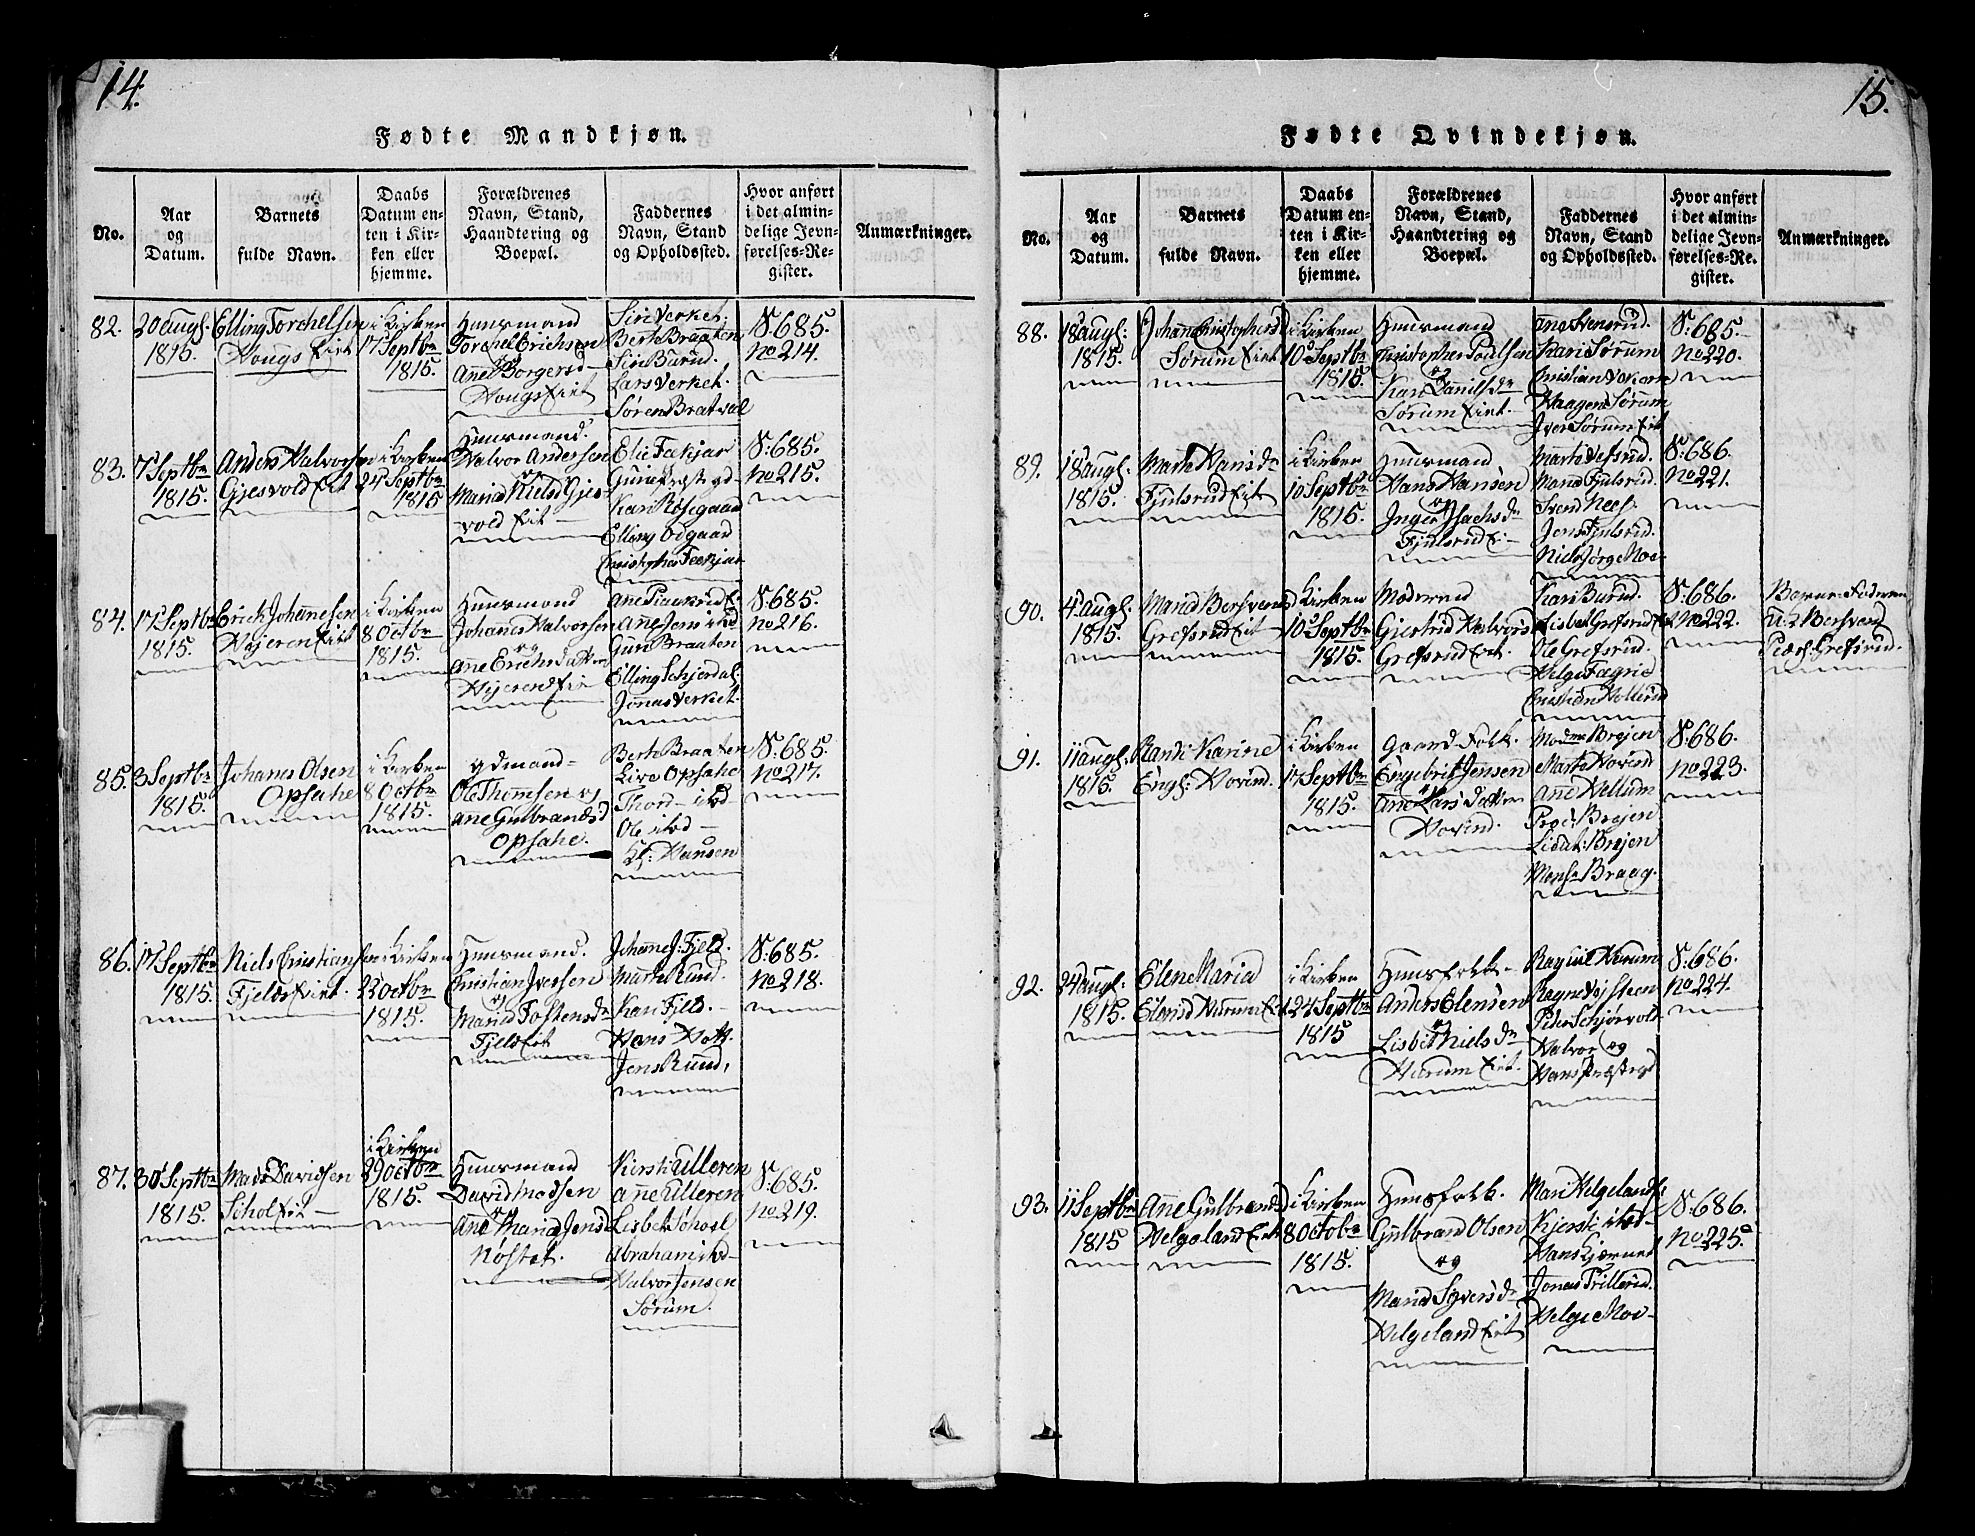 14.
Fødte Mandkjøn.
No.
Aar
og
Datum.
Barnets
fulde Navn.
Daabs
Datum en-
ten i Kir-
ken eller
hjemme.
Forældrenes
Navn, Stand,
Haandtering og
Boepæl.
Faddernes
Navn, Stand
og Opholdssted.
Hvor anført
i det almin-
delige Jevn-
førelses-Re-
gister.
Anmærkninger.
82.
20 augl.
1815.
Elling Torchelsen
Hougs Eie
i Kirken
17 Septbr
1815.
Huusmand
Torchel Erichsen
og
Ane Borgersd
Hougs Eie
Siri Verket
Berthe Braaten
Siri Burud
Lars Verket.
Søren Bratvol
S: 685.
No 214.
83.
7 Septbr
1815.
Anders Halvorsen
Gjesvold Eiet
i Kirken
24 Septbr
1815
Huusmand.
Halvor Andersen
og
Maria Nielsd Gjes-
vold Eie
Elie
Kari Røsegaard
Elling Odgaard
S: 685.
No 215.
84.
17 Septbr
1815.
Erich Johannesen
Højeren Eiet
i Kirken
8 Octbr
1815.
Huusmand
Johanes Halvorsen
og
Ane Erichs Datter
Ane
Guri Braaten
Elling Schjerdal
Jonas Verket.
S: 685.
No 216.
85.
3 Septbr
1815.
Johanes Olsen
Opsahe
i Kirken
8 Octbr
1815.
Gdmand
Ole Thomesen og
Ane Gulbrandsd
Opsahe.
Berthe Braaten
Live Opsahe
Thord ibd
Ole ibd
Kl: Hansen
S: 685.
No 217.
86.
17 Septbr
1815.
Niels Cristiansen
Fjelds Eiet.
i Kirken
22 Octbr
1815.
Huusmand.
Christian Iversen
og
Maria Tostensdr
Fjeld Eiet
Johanne J: Fjeld.
Marthe Rund.
Kari Fjeld.
Hans
Jens Rund,
S: 685.
No 218.
87.
30 Septbr
1815.
Mads Davidsen
Schol Eie
i Kirken
29 Octbr
1815.
Huusmand
David Madsen
og
Ane Maria Jensd
Nøstet.
Kirsti Ulleren
Anne Ulleren
Lisbet Schosl
Abraham ibd
Halvor Jensen
Sørum.
S: 685.
No 219.
15.
Fødte Qvindekjøn.
No.
Aar
og
Datum.
Barnets
fulde Navn.
Daabs
Datum en-
ten i Kir-
ken eller
hjemme.
Forældrenes
Navn, Stand,
Haandtering og
Boepæl.
Faddernes
Navn, Stand
og Opholdssted.
Hvor anført
i det almin-
delige Jevn-
førelses-Re-
gister.
Anmærkninger.
88.
18 augl:
1815.
Johane Christophersd
Sørum Eiet
i Kirken
10 Septbr
1815.
Huusmand
Christopher Poulsen
og
Kari Danielsdr
Sørum Eiet.
Ane Svensrud.
Kari Sørum
Haagen Sørum
Iver Sørum Eie
S: 685.
No 220.
89.
18 augl:
1815.
Marte Hansdr
Fjulsrud Eiet
i Kirken
10 Septbr
1815.
Huusmand
Hans Hansen
og
Inger Isachsdr
Fjulsrud Ei
Marte
Maria Fjulsrud.
Svend Nees.
Jens Fjulsrud.
Niels Jørge Moe
S: 686.
No 221.
90.
4 augl.
1815.
Maria Bersvend
Grefsrud Eiet
i Kirken
10 Septbr
1815.
Moderen
Giertrud Halvors
Grefsrud Eiet.
Kari Burud.
Lisbet Grefsrud
Ole Grefsrud.
Helge Fagrie
Cristian Hollerud
S: 686.
No 222.
Barne-Faderen
U: K Bersvend
Peders Grefsrud.
91.
11 augl.
1815.
Randi Karine
Engl: Hovind.
i Kirken
17 Septbr
1815.
Gaard Folk.
Engebrit Jensen
og
Ane Lars Datter
Hovind.
Modme Brøjen
Marte Hovind
Anne Hellum
Proc: Brøjen
Lieut: Brøjen
Monsr Braag.
S: 686.
No 223.
92.
24 augl:
1815.
Elene Maria
Hurum Eie
i Kirken
24 Septbr
1815
Huusfolk
Anders Elensen
og
Lisbet Nielsdr
Hurum Eiet.
Ragnil Hurum
Ragne Vejsteen
Peder Schjørvold
Halvor og
Hans Præstegd
S: 686.
No 224.
93.
11 Septbr
1815
Anne Gulbrandsd
Helgeland Eiet
i Kirken
8 Octobr
1815.
Huusfolk.
Gulbrand Olsen
og
Maria Syversdr
Helgeland Eiet
Mari Helgeland.
Kjersti ibd
Hans Kjærnet
Jonas Trillerud.
Helge Moe
S: 686.
No 225.